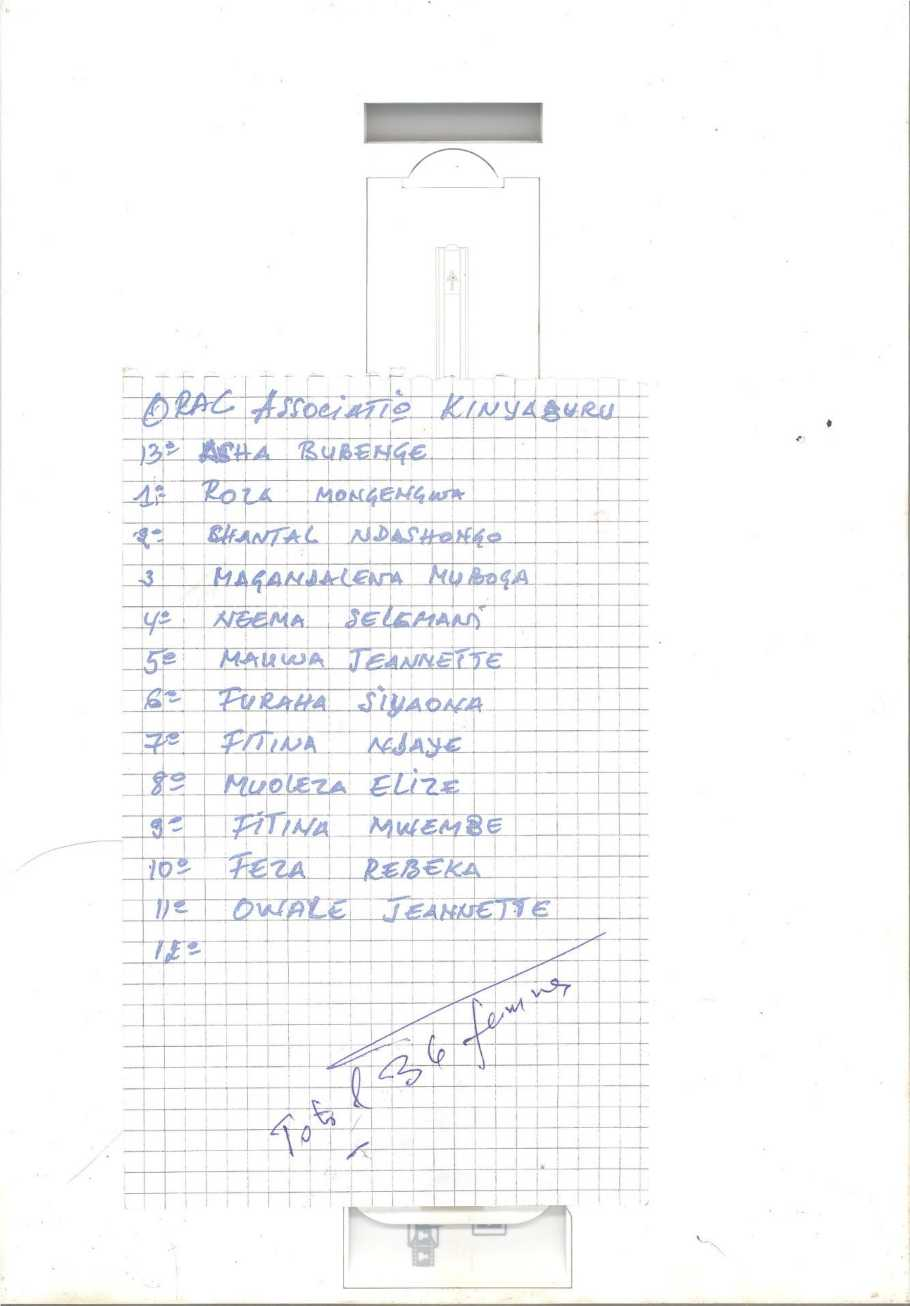 ORAC ASSOCIATIO KINYABURU
13e ASHA BUBENGE
1e ROZA MONGENGWA
2e CHANTAL NDASHONGO
3 MAGANDALENA MUBOGA
4e NEEMA SELEMANI
5e MAUWA JEANNETTE
6e FURAHA SIYAONA
7e FITINA NDAYE
8e MUOLEZA ELIZE
9e FITINA MWEMBE
10e FEZA REBEKA
11e OWARE JEANNETTE
12e
Total 36 femmes